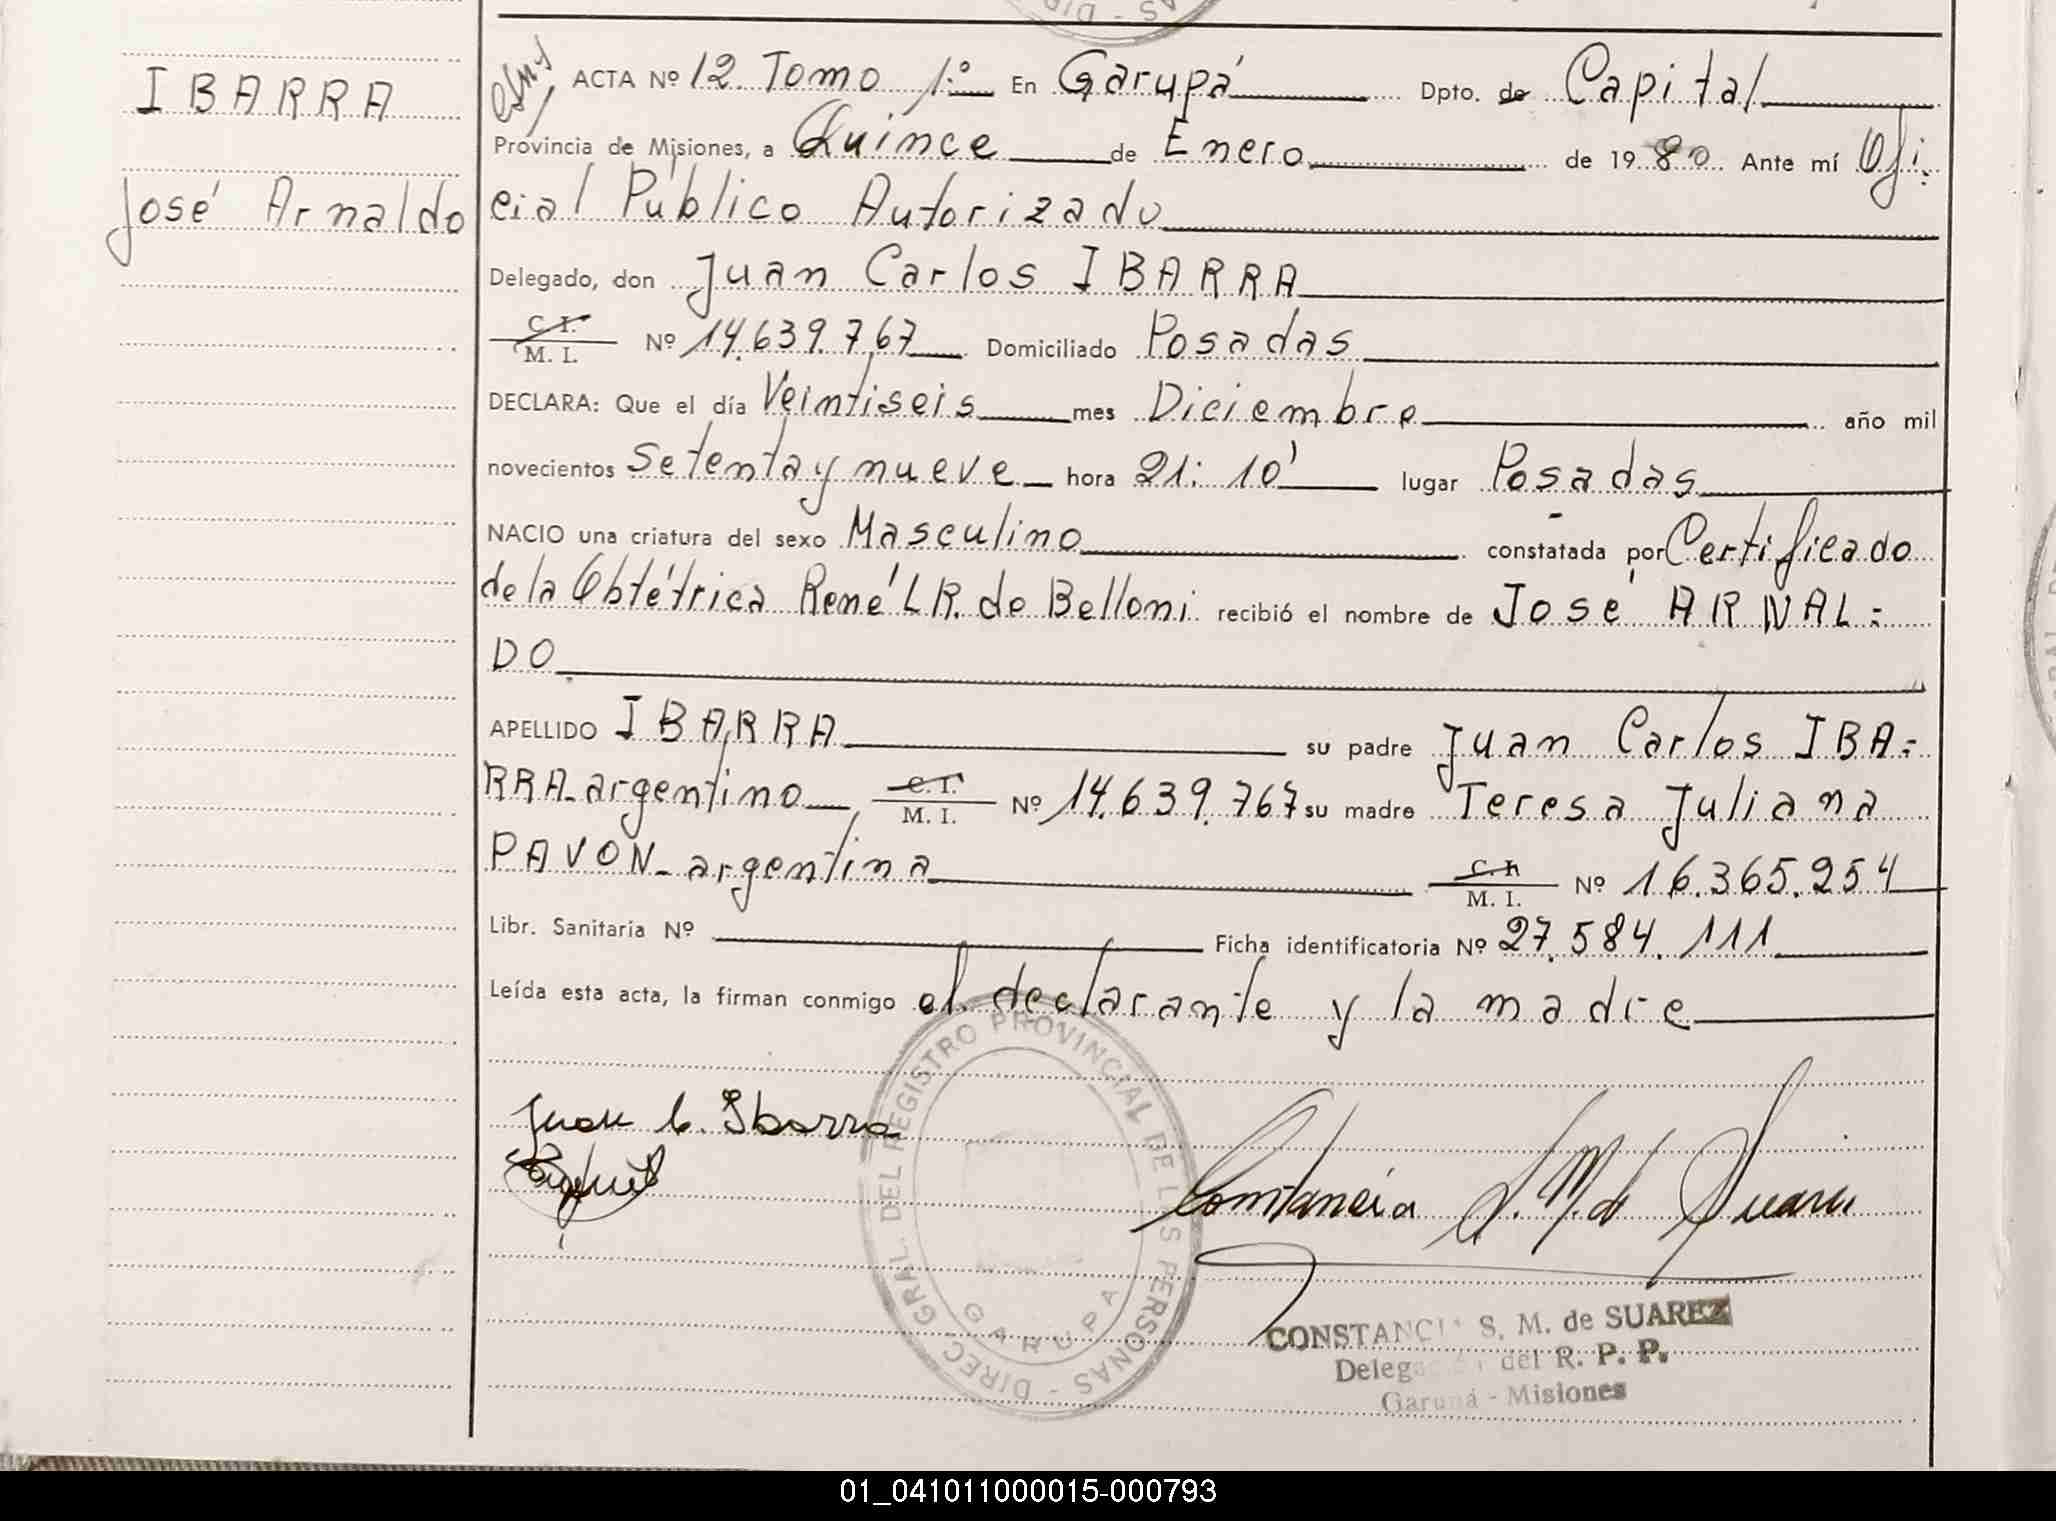 IBARRA
José Arnaldo
ACTA Nº 12. Tomo 1º En Garupá Dpto. de Capital
Provincia de Misiones, a Quince de Enero de 1980 Ante mí Ofi-
cial Público Autorizado
Delegado, don Juan Carlos IBARRA
C. I.
M. I. Nº 14.639.767 Domiciliado Posadas
DECLARA: Que el día Veintiseis mes Diciembre año mil
novecientos Setenta y nueve hora 21:10' lugar Posadas
NACIO una criatura del sexo Masculino constatada por Certificado
de la Obtétrica René L R. de Belloni recibió el nombre de José ARNAL=
DO
APELLIDO IBARRA su padre Juan Carlos IBA=
RRA-argentino C. I.
M. I. Nº 14.639.767 su madre Teresa Juliana
PAVON-argentina C. I.
M. I. Nº 16.365.254
Libr. Sanitaria Nº Ficha identificatoria Nº 27.584.111
Leída esta acta, la firman conmigo el declarante y la madre
Juan C. Ibarra
Constancia S. M. de Suarez
DIREC. GRAL. DEL REGISTRO PROVINCIAL DE LAS PERSONAS -
GARUPA
CONSTANCIA S. M. de SUAREZ
Delegación del R. P. P.
Garupá - Misiones
01_041011000015-000793